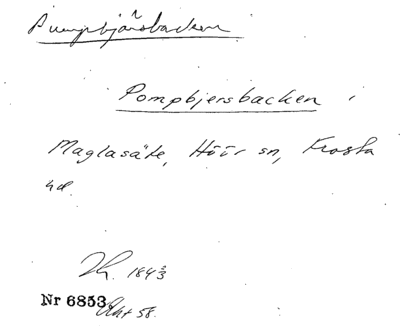 Pumpbjärsbacken
Pompbjersbacken
Maglasäte, Höör sn, Frosta
hd.
184 2/3
Nr 6853 Akt 58.